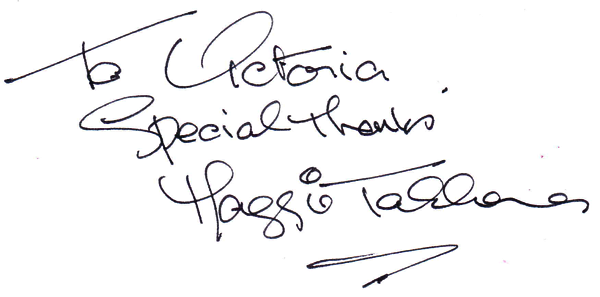 To Victoria
Special thanks
Maggie Tabberer